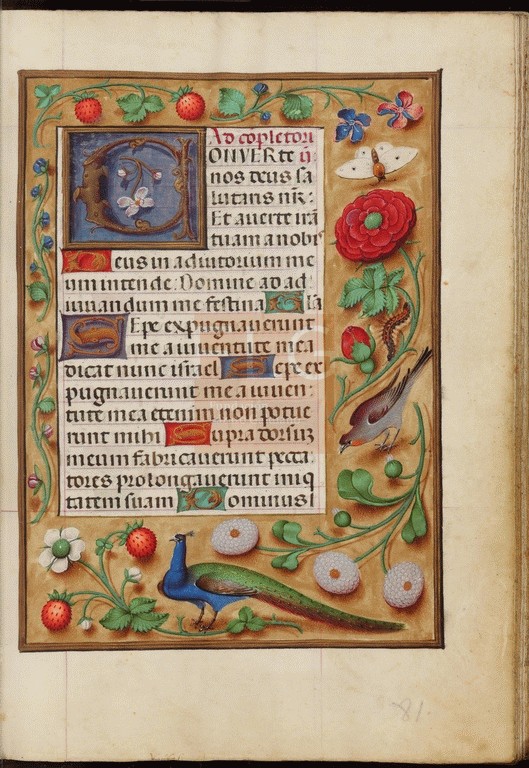 Ad cōpletoriu
CONVERte n̄
nos deus sa
lutaris nr̄:
Et auerte irā
tuam a nobis
Deus in adiutorium me
um intende: Domine ad ad
iuuandum me festina Gla
Sepe expugnauerunt
me a iuuentute mea
dicat nunc israel Sepe ex
pugnauerunt me a iuuen
tute mea etenim non potue
runt mihi Supra dorsuʒ
meum fabricauerunt pecca
tores prolongauerunt iniq
tatem suam Dominus i
81.